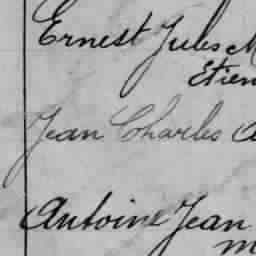 Ernest Jules M
Etien
Jean Charles A
Antoine Jean
m